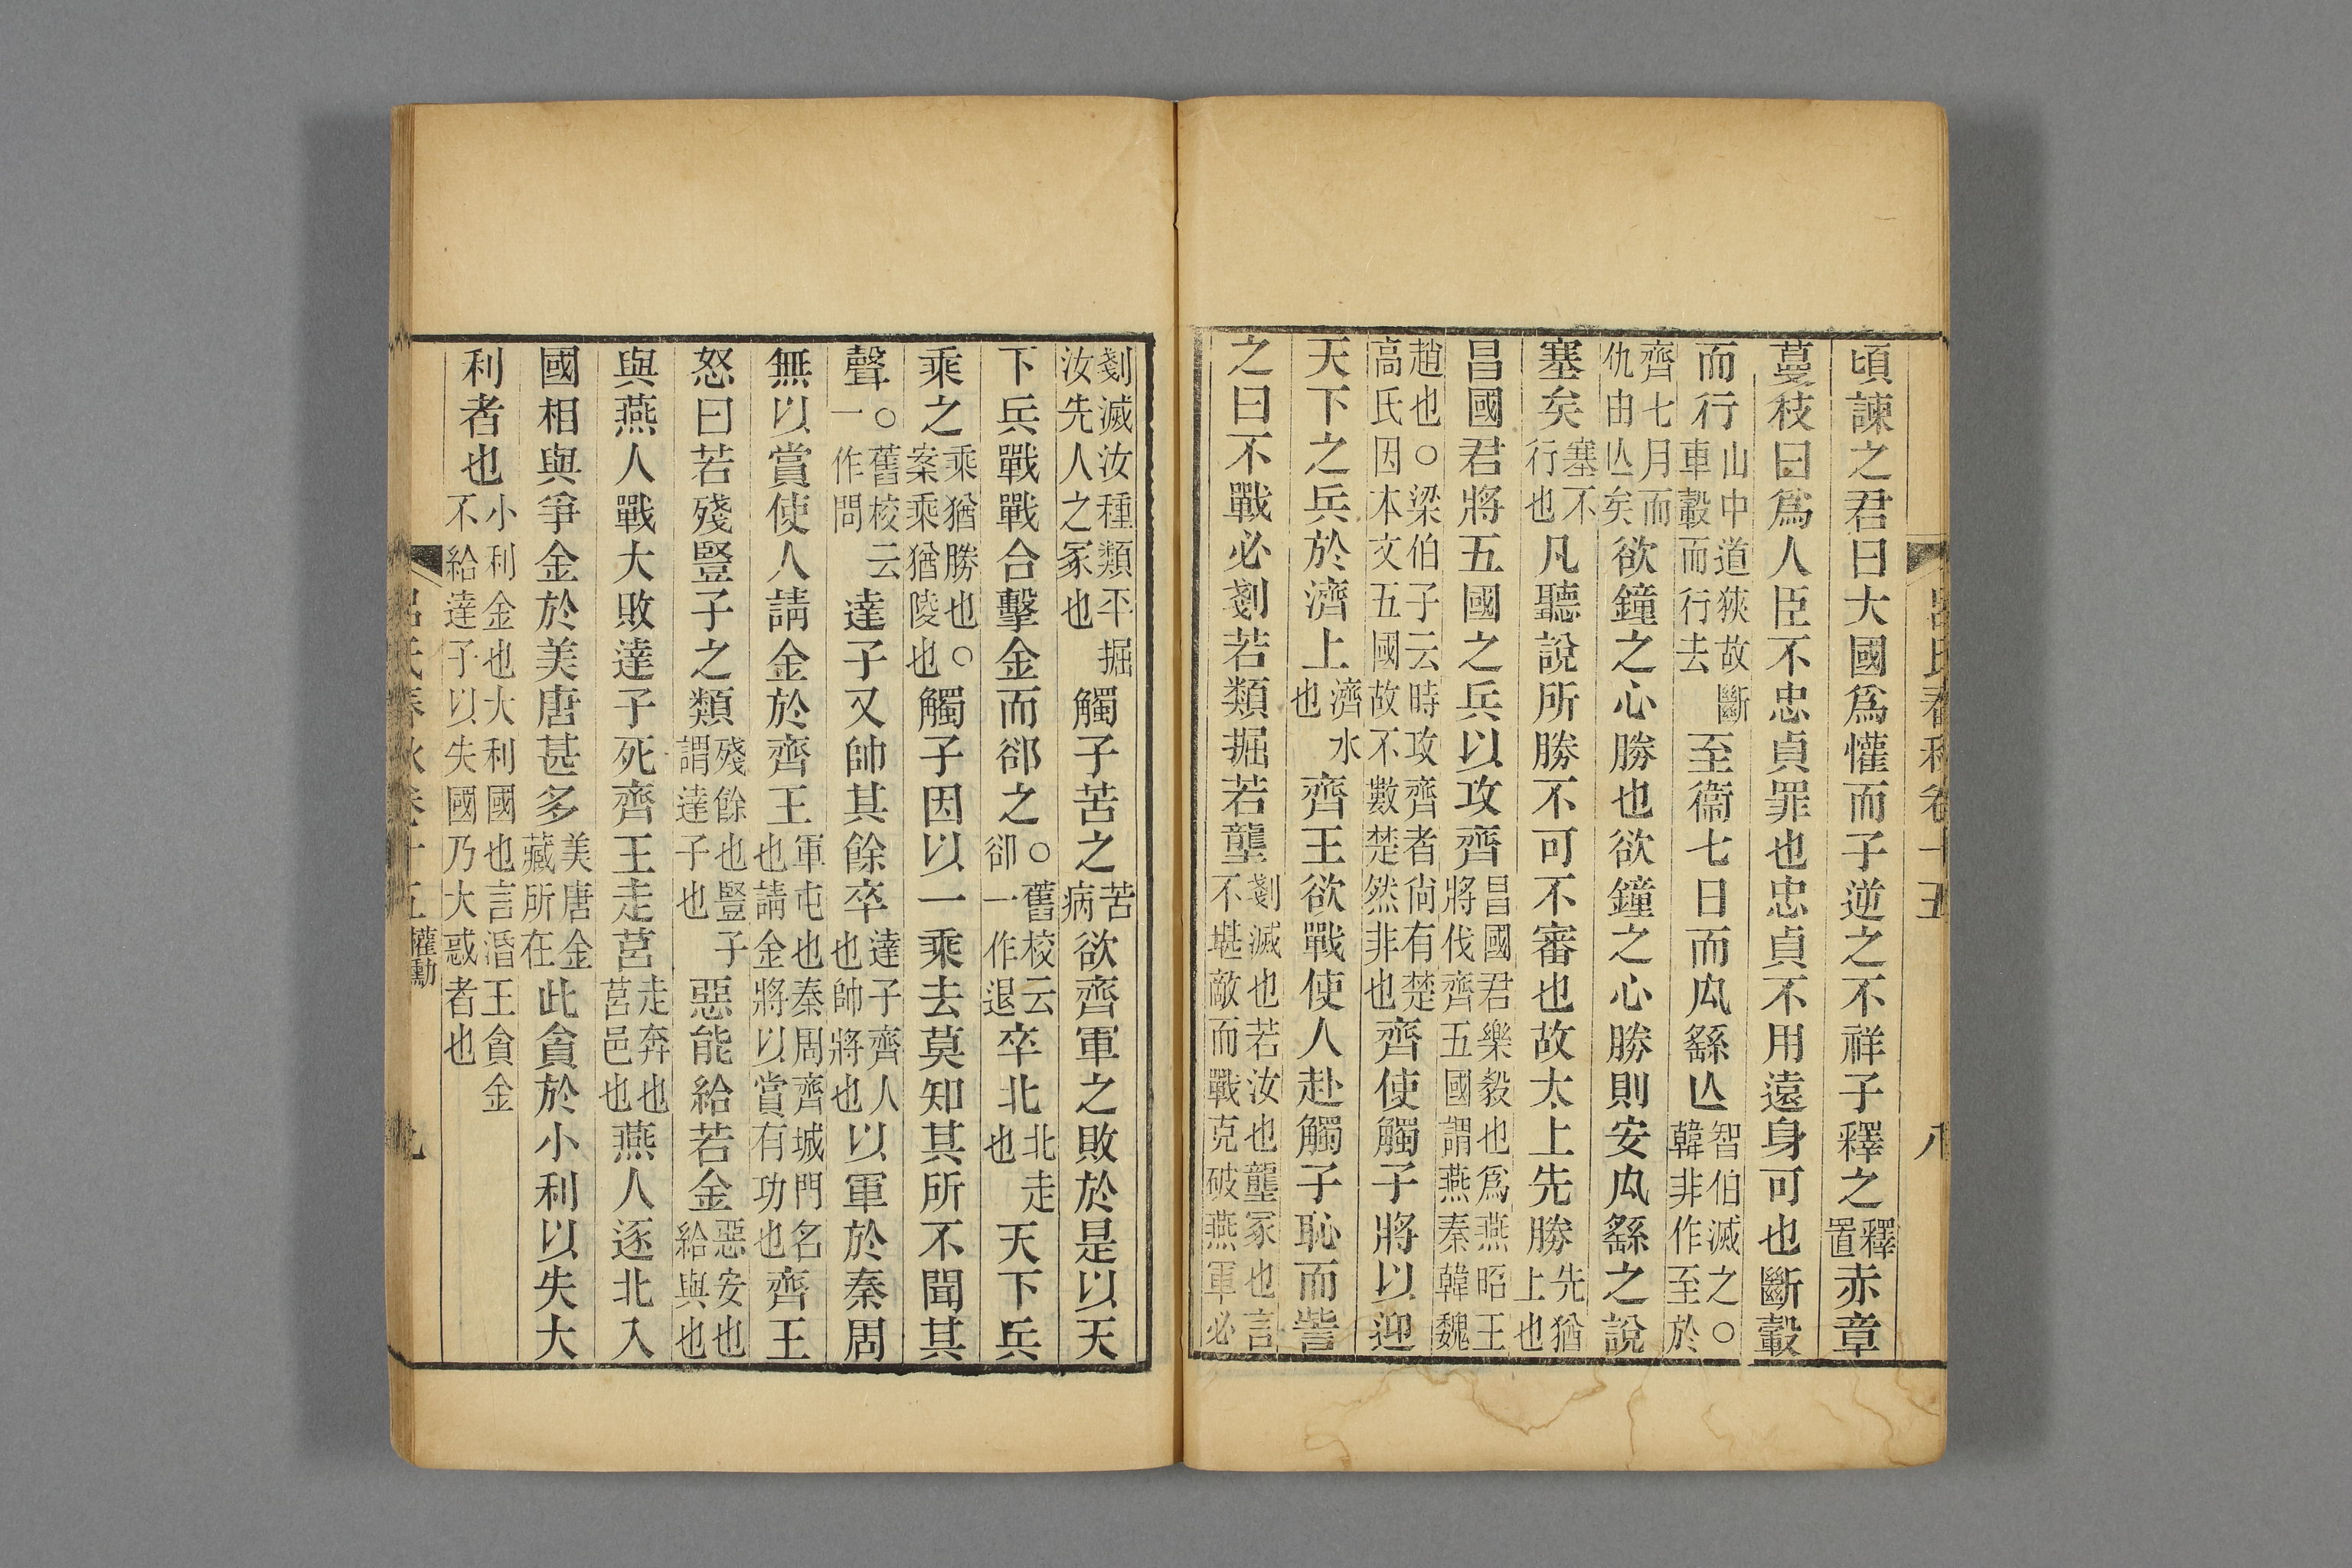 頃諫之君曰大國爲懽而子逆之不祥子釋之釋置赤章
蔓枝曰爲人臣不忠貞罪也忠貞不用遠身可也斷轂
而行山中道狹故斷車轂而行去至衞七日而厹繇亾智伯滅之○韓非作至於
齊七月而仇由亾矣欲鐘之心勝也欲鐘之心勝則安厹繇之說
塞矣塞不行也凡聽說所勝不可不審也故太上先勝先猶上也
昌國君將五國之兵以攻齊昌國君樂毅也爲燕昭王將伐齊五國謂燕秦韓魏
趙也○梁伯子云時攻齊者尙有楚高氏因本文五國故不數楚然非也齊使觸子將以迎
天下之兵於濟上濟水也齊王欲戰使人赴觸子恥而訾
之曰不戰必剗若類掘若壟剗滅也若汝也壟冢也言不堪敵而戰克破燕軍必
剗滅汝種類平掘汝先人之冢也觸子苦之苦病欲齊軍之敗於是以天
下兵戰戰合擊金而郤之○舊校云卻一作退卒北北走也天下兵
乘之乘猶勝也○案乘猶陵也觸子因以一乘去莫知其所不聞其
聲○舊校云一作問達子又帥其餘卒達子齊人也帥將也以軍於秦周
無以賞使人請金於齊王軍屯也秦周齊城門名也請金將以賞有功也齊王
怒曰若殘豎子之類殘餘也豎子謂達子也惡能給若金惡安也給與也
與燕人戰大敗達子死齊王走莒走奔也莒邑也燕人逐北入
國相與爭金於美唐甚多美唐金藏所在此貪於小利以失大
利者也小利金也大利國也言湣王貪金不給達子以失國乃大惑者也